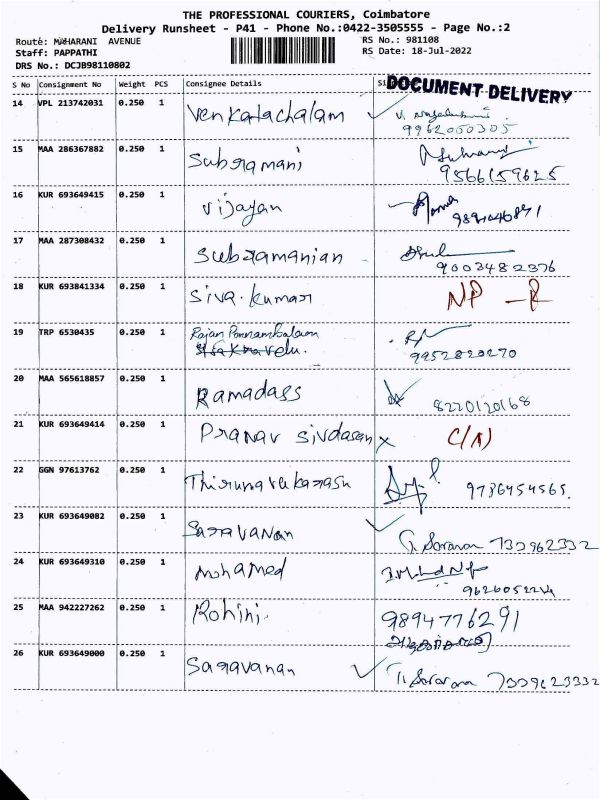 THE PROFESSIONAL COURIERS, Coimbatore
Delivery Runsheet - P41 - Phone No.:0422-3505555 - Page No.:2
Route: MAHARANI AVENUE
RS No.: 981108
Staff: PAPPATHI
RS Date: 18-Jul-2022
DRS No.: DCJB98110802
S No Consignment No Weight PCS Consignee Details
DOCUMENT DELIVERY
14 VPL 213742031 0.250 1 Venkatachalam
9962060305
15 MAA 286367882 0.250 1 Subramani
9566159625
16 KUR 693649415 0.250 1 Vijayan
17 MAA 287308432 0.250 1 Subramanian
9003482376
18 KUR 693841334 0.250 1 Siva.kumar NP -R
19 TRP 6530435 0.250 1 Rajan Ponnambalam
9952820270
20 MAA 565618857 0.250 1 Ramadass
8220120168
21 KUR 693649414 0.250 1 Pranav Sivdasan x C/N
22 GGN 97613762 0.250 1 Thirunavukarasu 9786454565.
23 KUR 693649082 0.250 1 Saravanan
24 KUR 693649310 0.250 1 Mohamed
25 MAA 942227262 0.250 1 Rohini. 9894776291
26 KUR 693649000 0.250 1 Saravanan